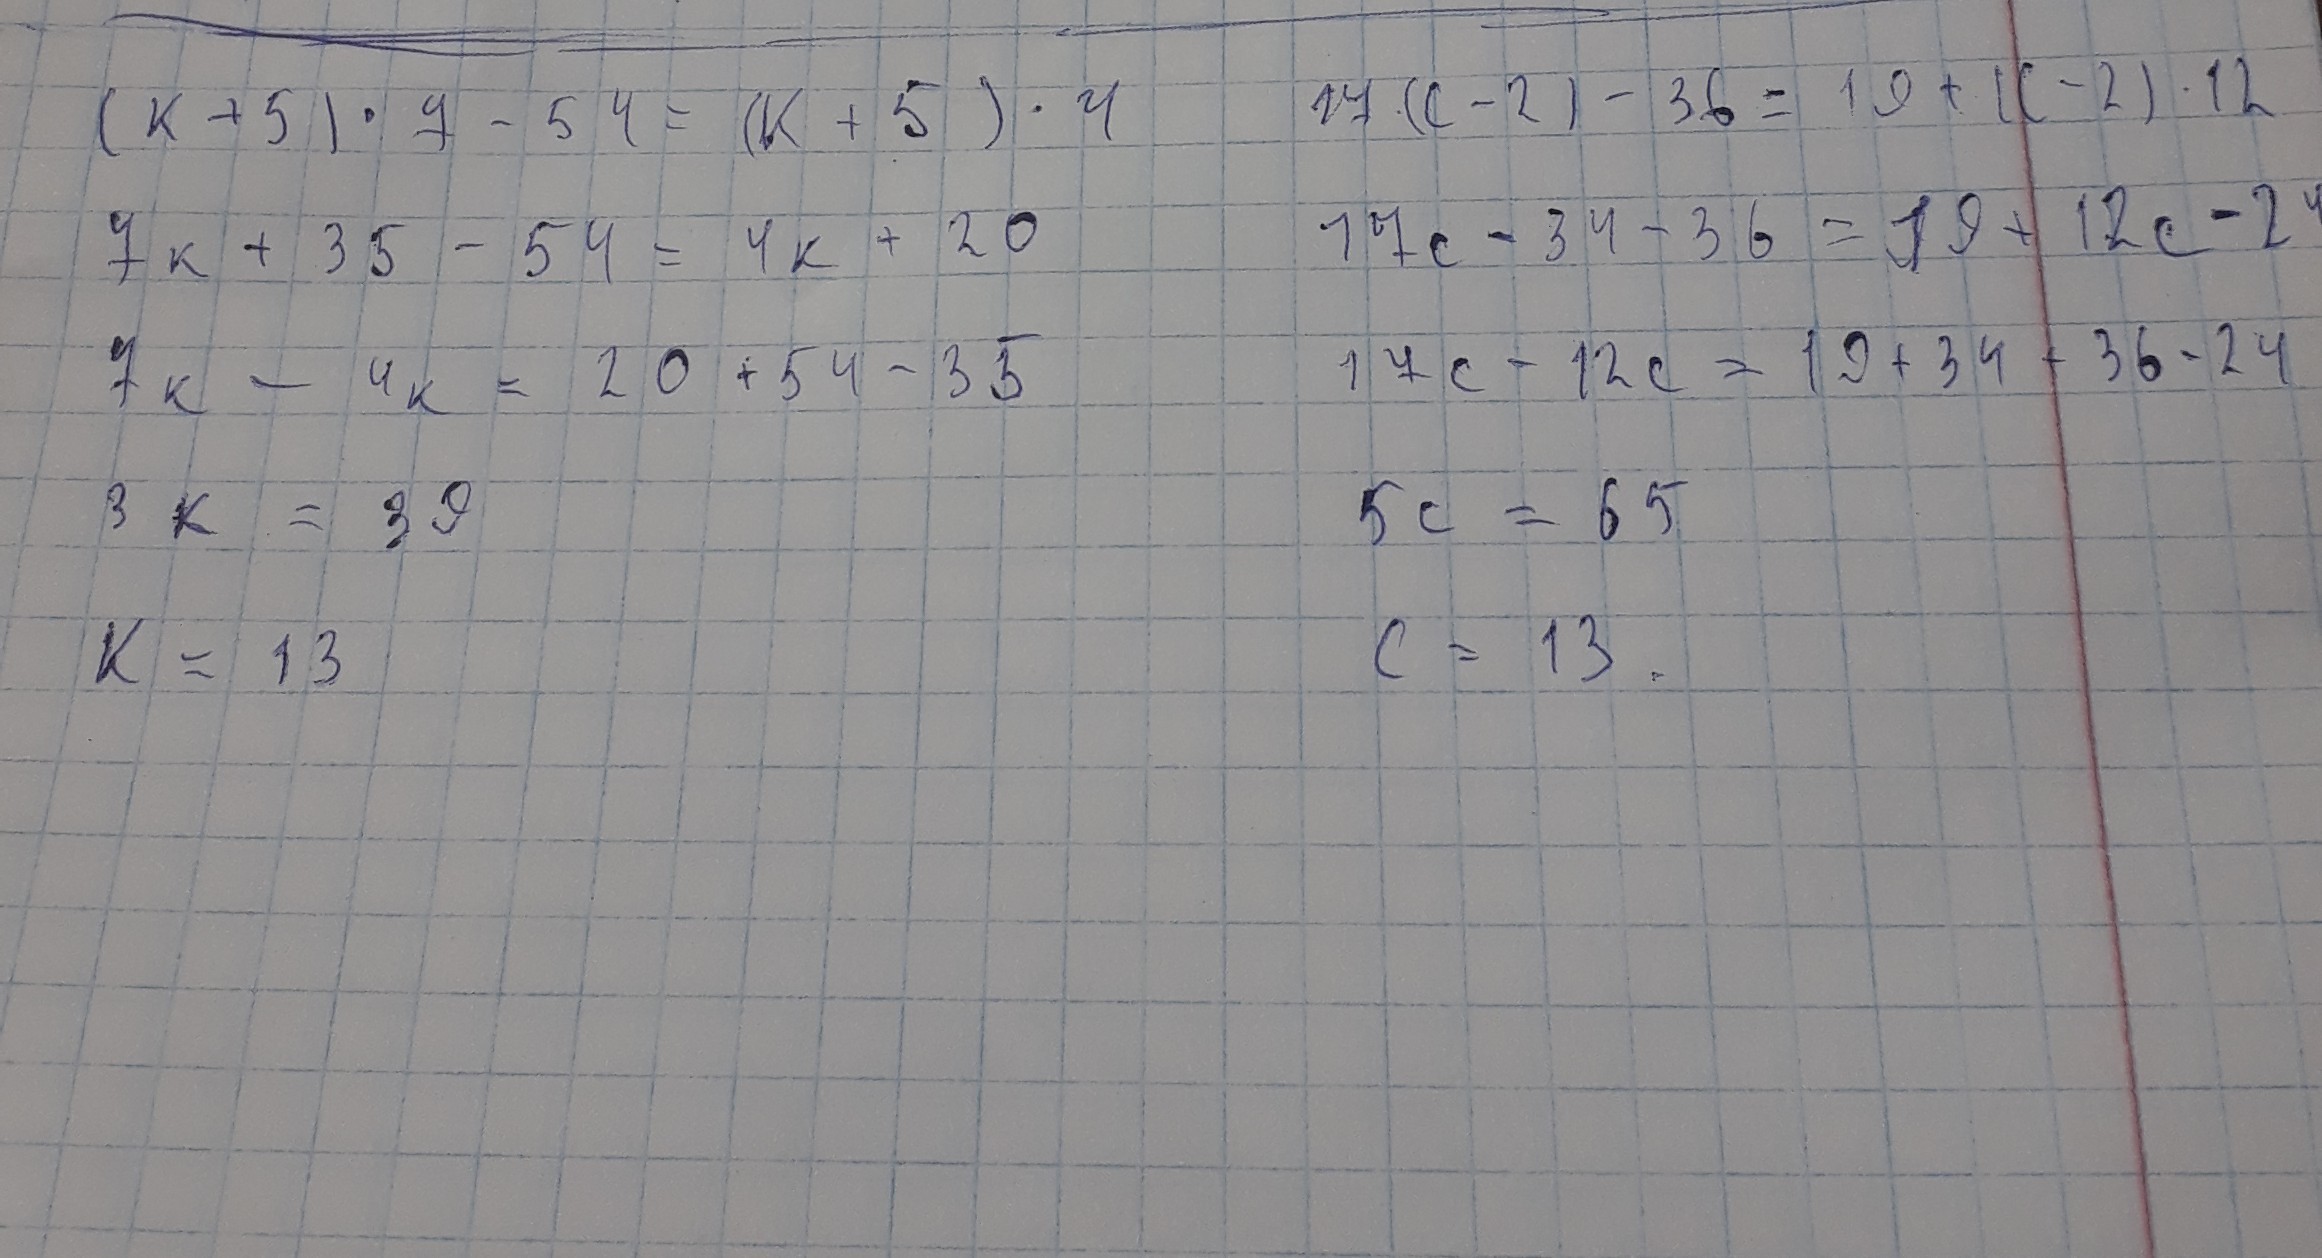 (к + 5) · 7 - 54 = (к + 5) · 4
7к + 35 - 54 = 4к + 20
7к - 4к = 20 + 54 - 35
3к = 39
к = 13
17·(с - 2) - 36 = 19 + (с - 2) · 12
17с - 34 - 36 = 19 + 12с - 24
17с - 12с = 19 + 34 + 36 - 24
5с = 65
с = 13.